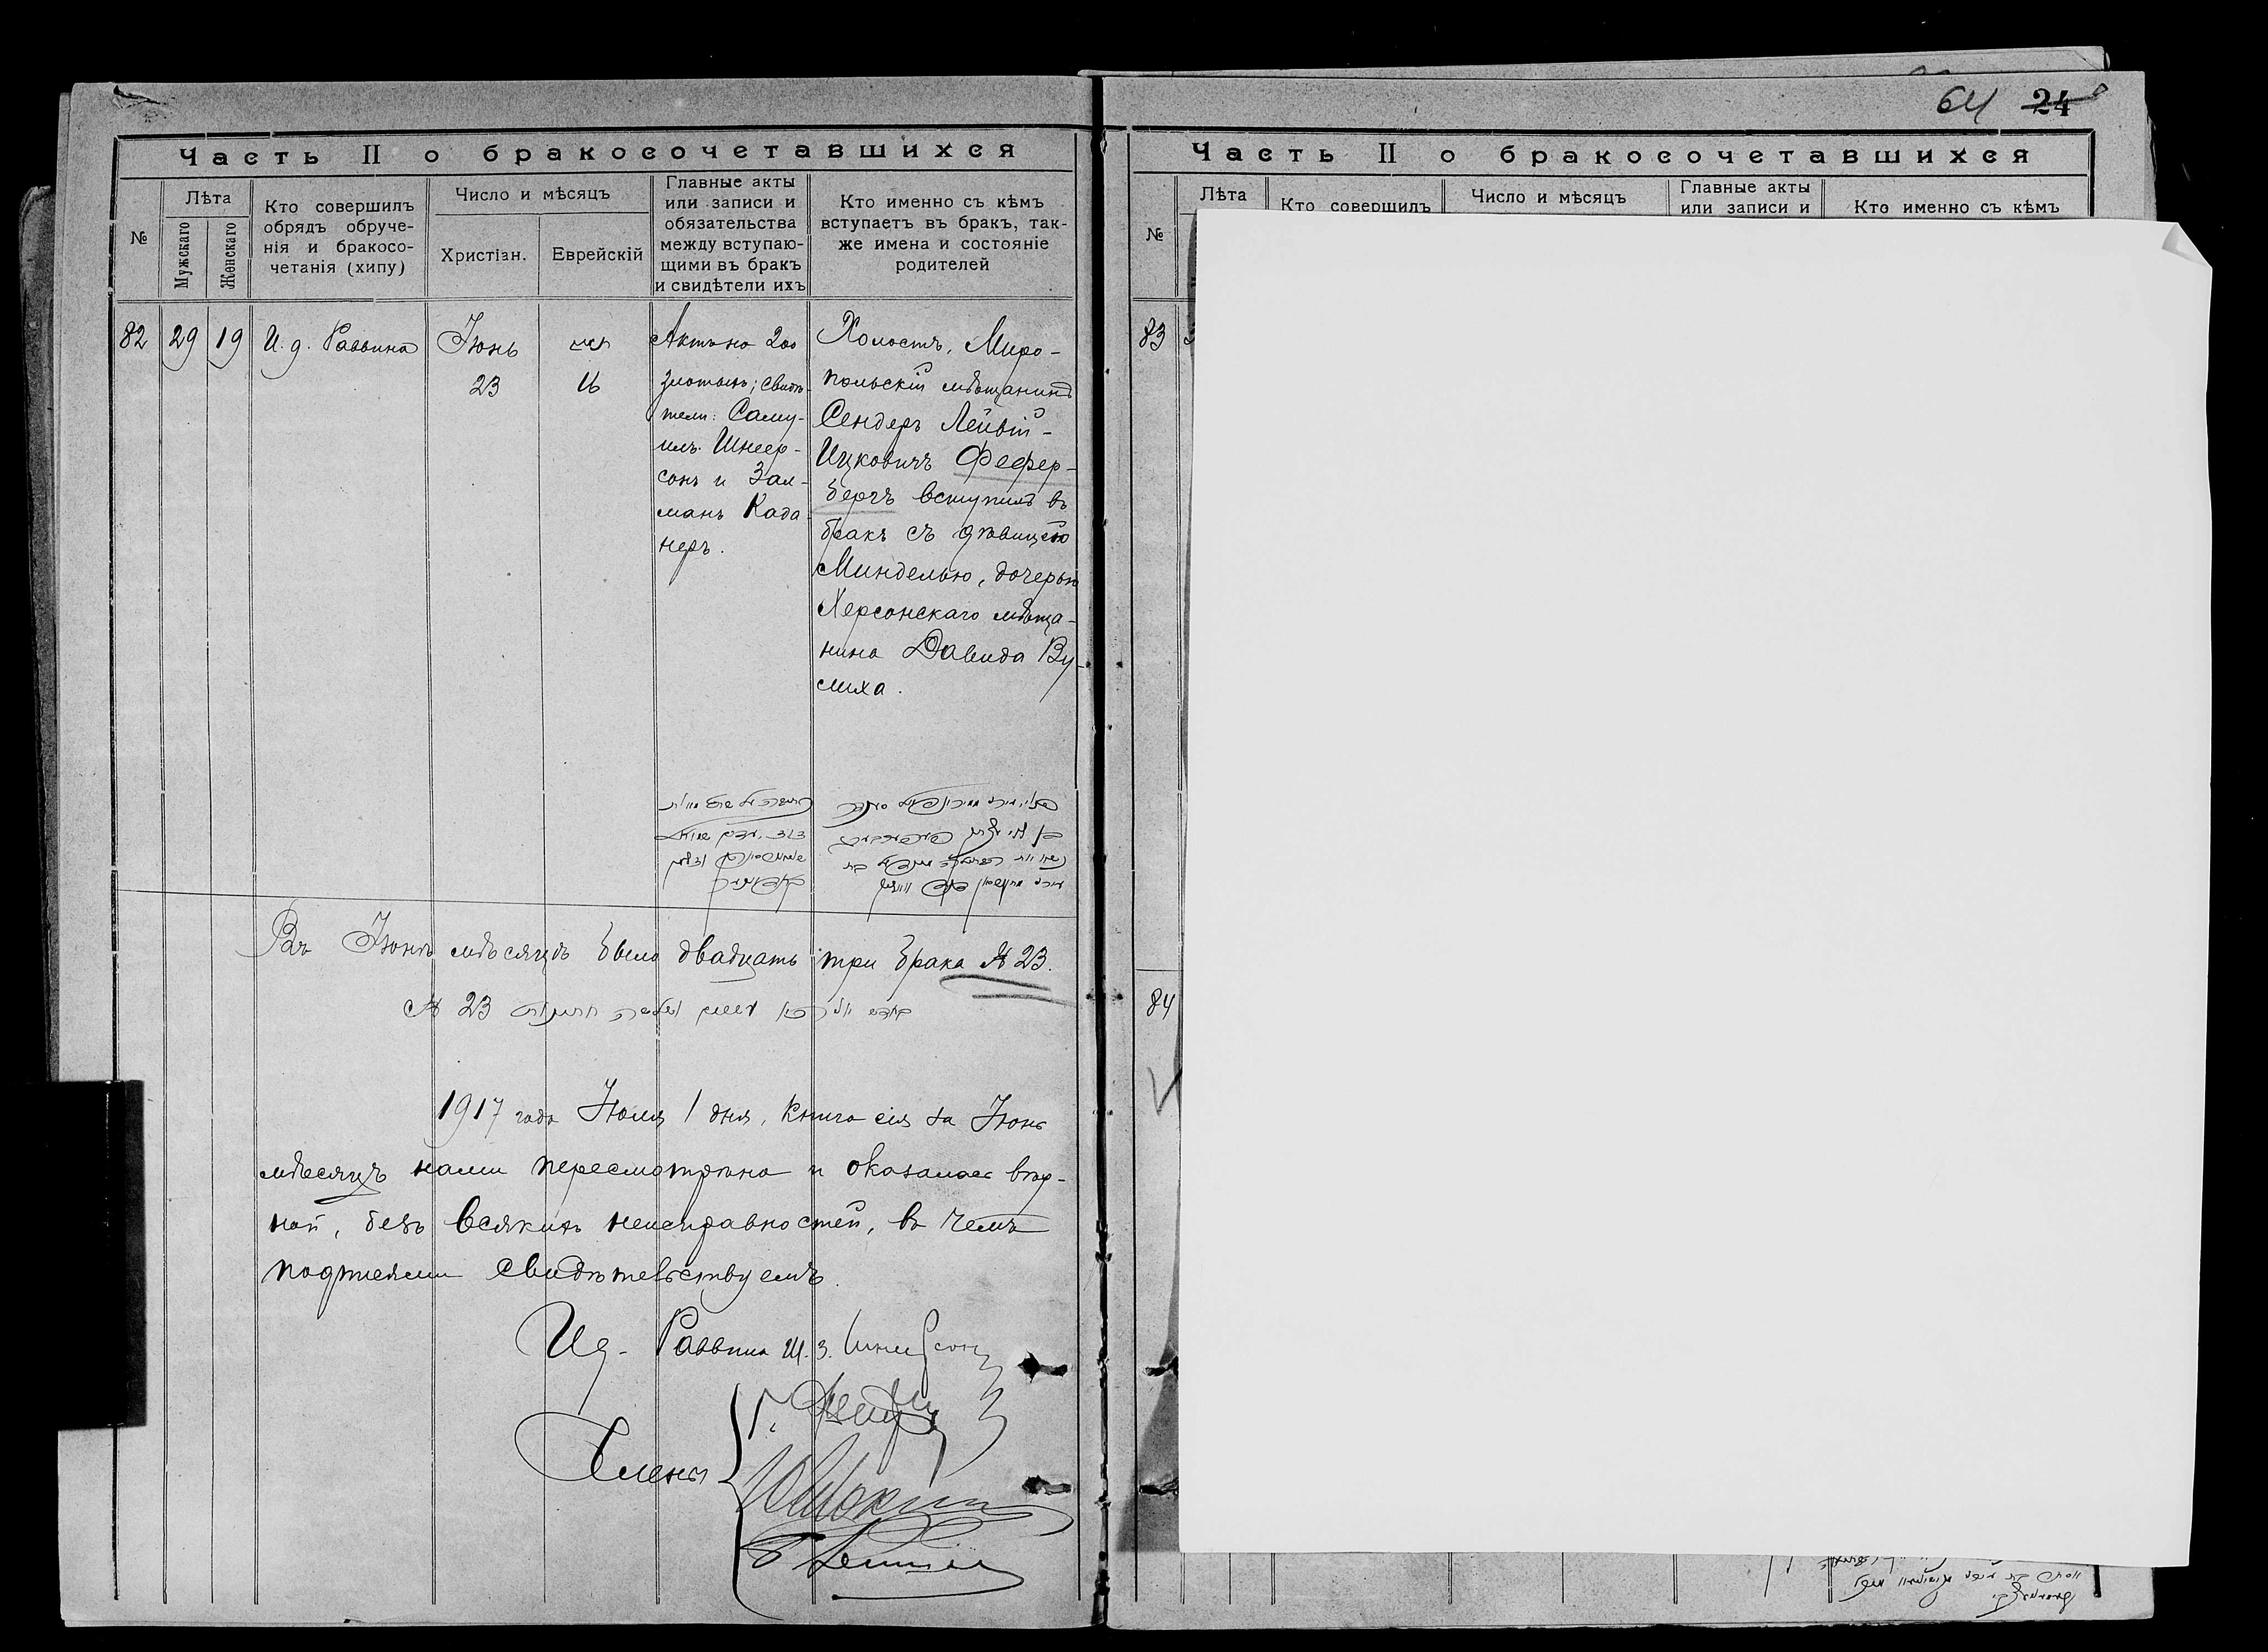 64 24
Часть II о бракосочетавшихся
№
Лѣта
Мужскаго
Женскаго
Кто совершилъ
обрядъ обруче-
нія и бракосо-
четанія (хипу)
Число и мѣсяцъ
Христіан.
Еврейскій
Главные акты
или записи и
обязательства
между вступаю-
щими въ бракъ
и свидѣтели ихъ
Кто именно съ кѣмъ
вступаетъ въ бракъ, так-
же имена и состояніе
родителей
82
29
19
И. д. Раввина
Іюнь
23
16
Актъ на 200
злотыхъ; свидѣ-
тели: Саму-
илъ Шнеер-
сонъ и Зал-
манъ Када-
неръ.
Холостъ, Миро-
польскій мѣщанинъ
Сендеръ Лейви-
Ицковичъ Фефер-
бергъ вступилъ въ
бракъ съ дѣвицею
Минделью, дочерью
Херсонскаго мѣща-
нина Давида Ву-
лиха.
Въ Іюнѣ мѣсяцѣ было двадцать три брака № 23.
№ 23
1917 года Іюля 1 дня, книга сія за Іюнь
мѣсяцъ нами пересмотрѣна и оказалась вѣр-
ной, безъ всякихъ неисправностей, въ чемъ
подписями свидѣтельствуемъ.
И д. Раввина Ш. З. Шнеерсонъ
Члены
Часть II о бракосочетавшихся
№
Лѣта
Кто совершилъ
Число и мѣсяцъ
Главные акты
или записи и
Кто именно съ кѣмъ
83
84